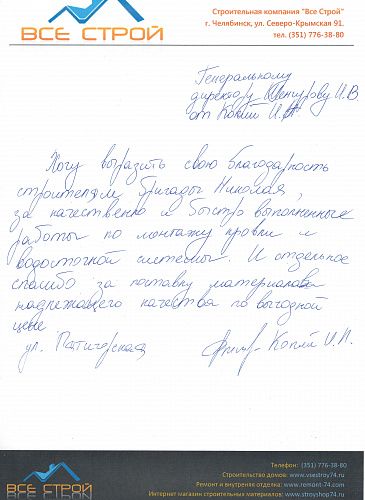 ВСЕ СТРОЙ
Строительная компания "Все Строй"
г. Челябинск, ул. Северо-Крымская 91.
тел. (351) 776-38-80
Генеральному
директору И.В
от Копий И.
Хочу выразить свою благодарность
строителям бригады Николая,
за качественно и быстро выполненные
работы по монтажу кровли и
водосточной системы. И отдельное
спасибо за поставку материалов
надлежащего качества по выгодной
цене
ул. Пятигорская Копий И.П.
ВСЕ СТРОЙ
Телефон: (351) 776-38-80
Строительство домов: www.vsestroy74.ru
Ремонт и внутренняя отделка: www.remont-74.com
Интернет магазин строительных материалов: www.stroyshop74.ru